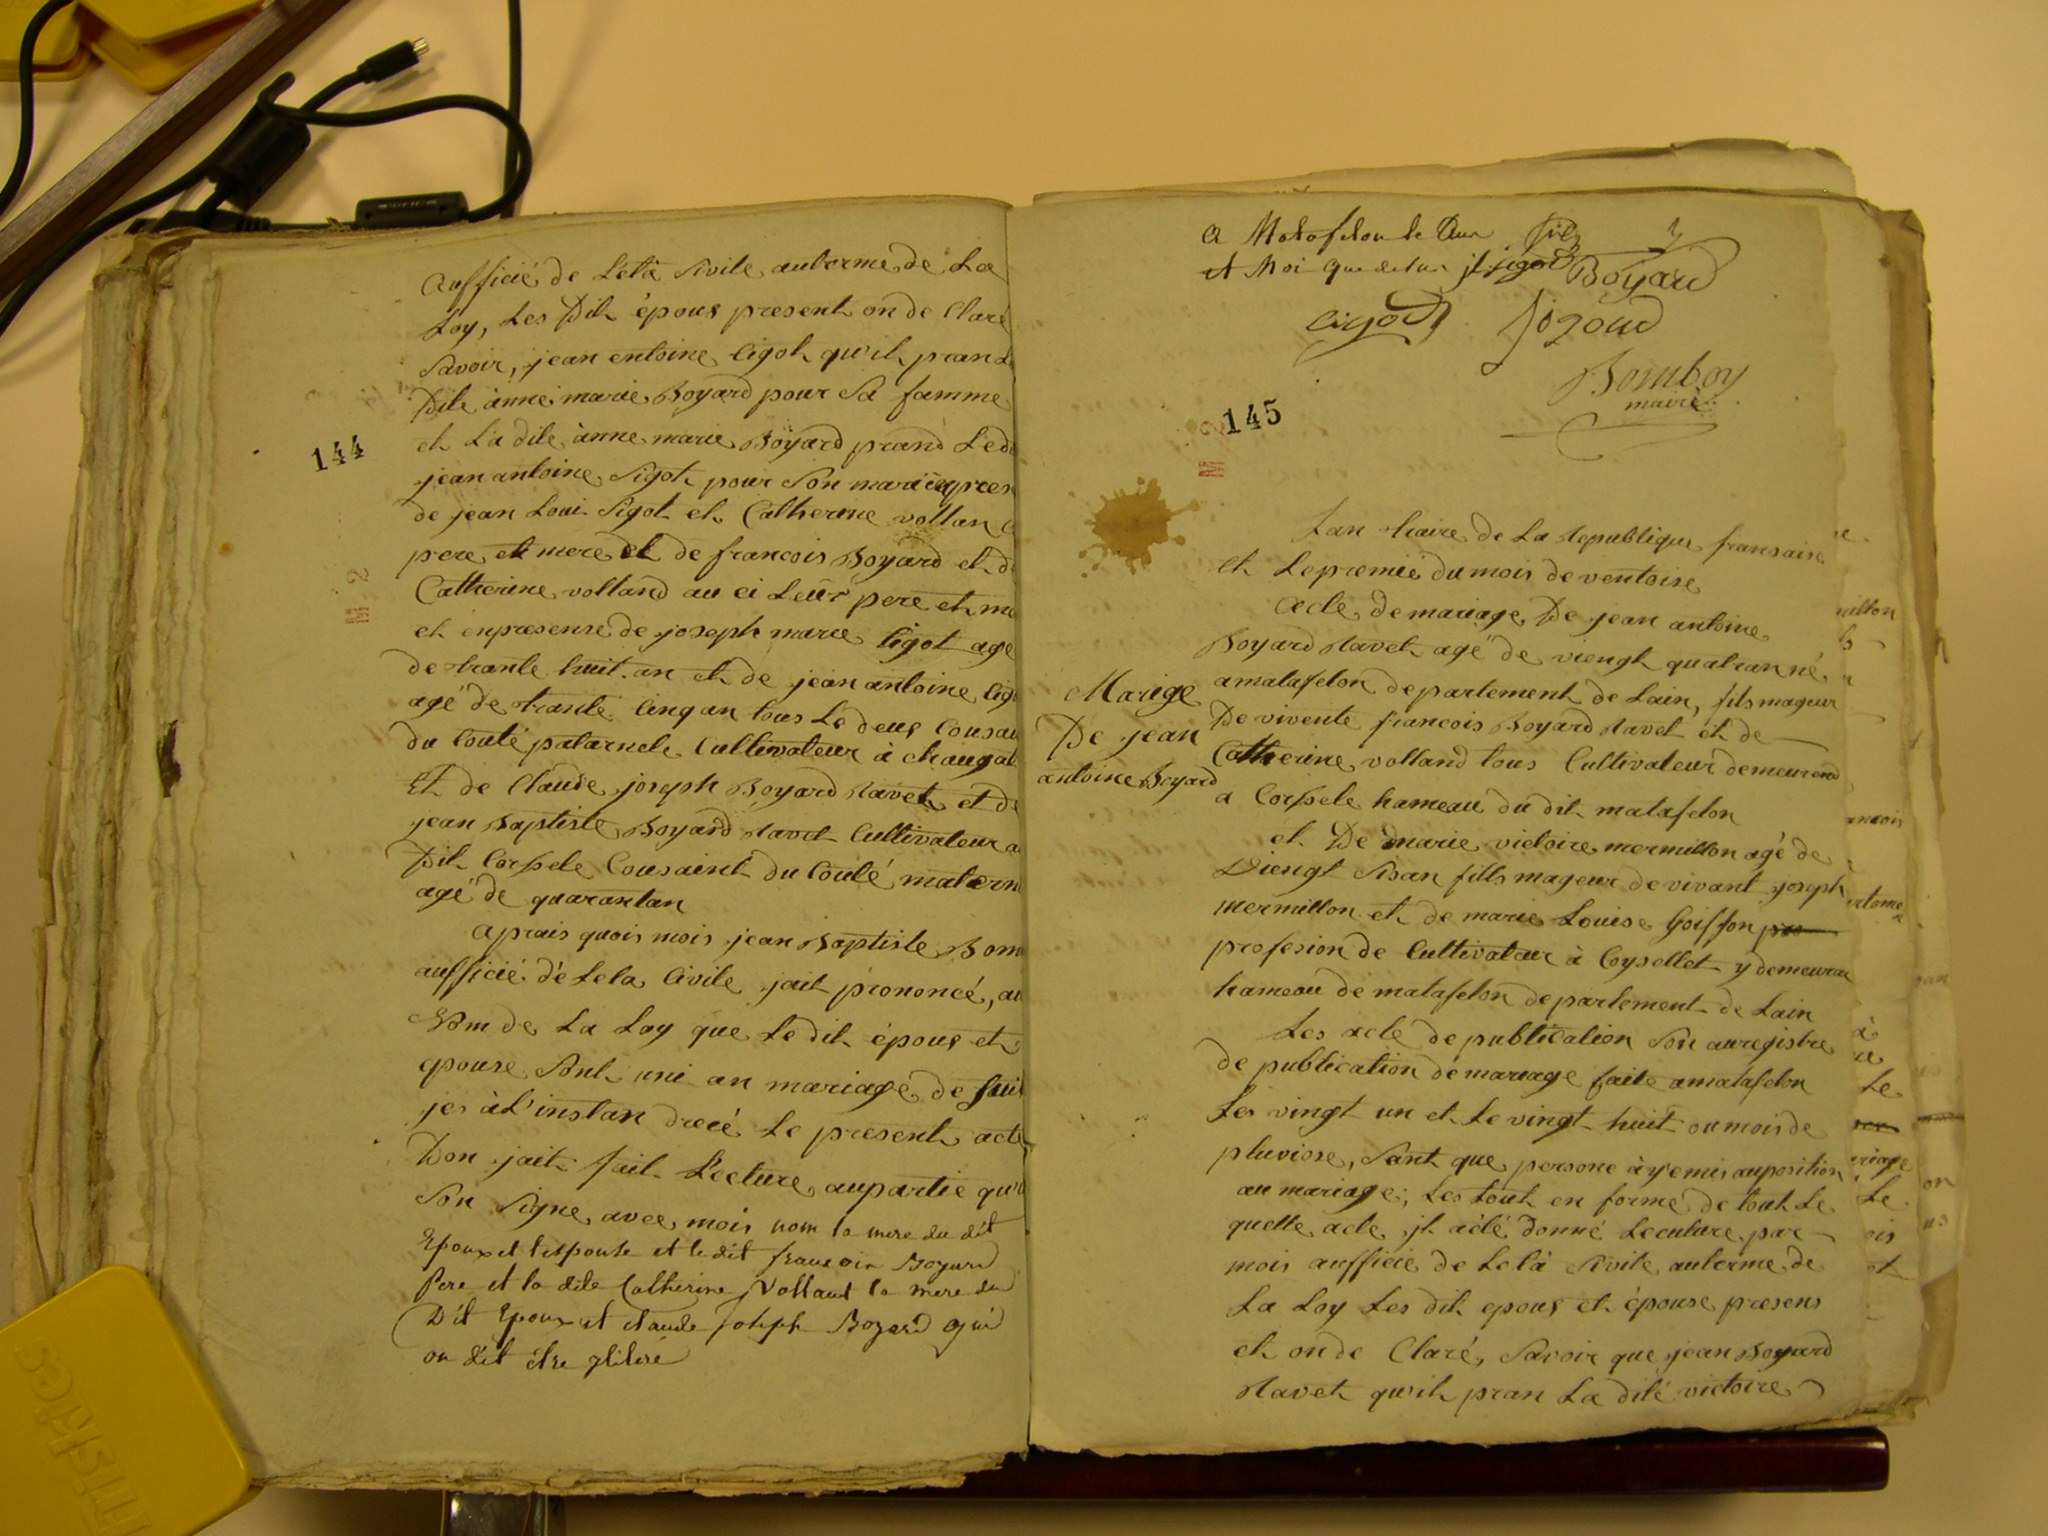 aufficié de Létà Sivile auterme de La
Loy, Les Dit époux present on de Claré
Savoir, jean entoine Cigot qu'il pran La
Dite ânne marie Boyard pour Sa famme
et La dite ânne marie Boÿard prand Ledi
144
jean antoine Sigot pour Son marie
de jean Loui Sigot et Catherine vollan
pere et mere et de francois Boyard et de
Catherine volland au ci Leur pere et me
et enpresense de joseph marie Cigot age
de trante huit an et de jean antoine Cigo
agé de trante Cinq an tous Le deux Cousai
du Couté patarnele Cultivateur à
Et de Claude joseph Boyard Ravet et de
jean Baptiste Boyard Ravet Cultivateur a
Dit Corssele Cousaint du Couté matern
agé de quarantan
aprais quois mois jean Baptiste Bom
aufficié dé Leta Civile jait prononcé, au
Nom de La Loy que Le dit époux et
epouse Sont uni an mariage de Suit
jes à L'instan drecé Le present acte
Don jait fait Lecture aupartie qu'
Son Signe avec mois nom la mere du dit
Epoux et l'espouse et le dit francois Boyard
Pere et la dite Catherine Volland la mere du
Dit Epoux et claude Joseph Boyard qui
on dit être
a Matafelon le
et Moi que desus Boyard
Cigot Sigoud
Bomboy
maire
145
Lan traire de La Republique fransaise
et Le premié du mois de ventoise
acte de mariage De jean antoine
Boyard Ravet agé de viengt quatran né
amatafelon departement de Lain, fils mageur
Marige
De vivente francois Boyard Ravet et de
De jean
Catherine volland tous Cultivateur demeurend
antoine Boyard
a Corssele hameau du dit matafelon
et De marie victoire mermillon agé de
Viengt Sisan fills mageur de vivant joseph
mermillon et de marie Louise Goiffon
profesion de Cultivateur à Coysellet y demeuran
hameau de matafelon departement de Lain
Les acté de publication Son auregistre
de publication de mariage faite amatafelon
Les vingt un et Le vingt huit du mois de
pluviose, Sant que persone à y emis auposition
au mariage; Les tout en forme de tout Le
quelle acte jl àété Donné Lecuture par
mois aufficié de Letà Sivile auterme de
La Loy Les dit epoux et épouse presens
et on de Claré, Savoir que jean Boyard
Ravet qu'il pran La dité victoire